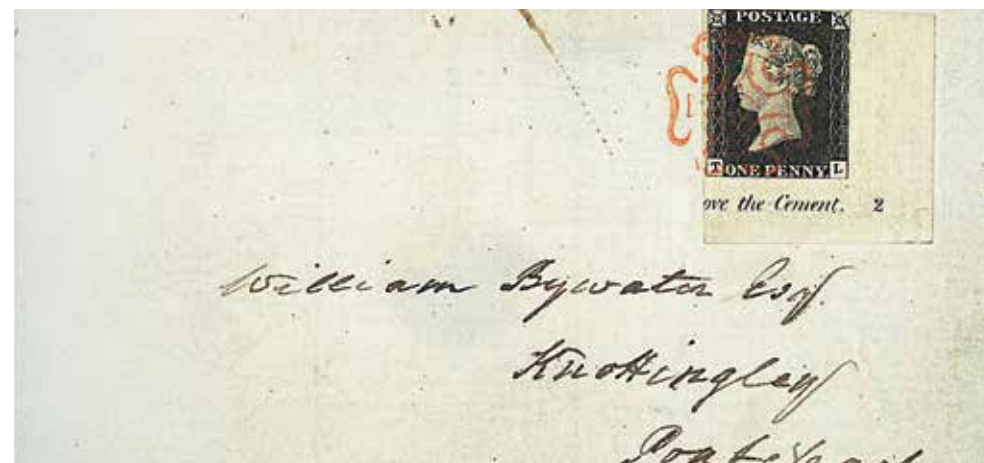 POSTAGE
T ONE PENNY L
ove the Cement. 2
William Bywater Esq.
Knottingley